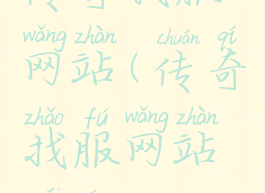 传奇找服
wǎng zhàn chuán qí
网站(传奇
zhǎo fú wǎng zhàn
找服网站